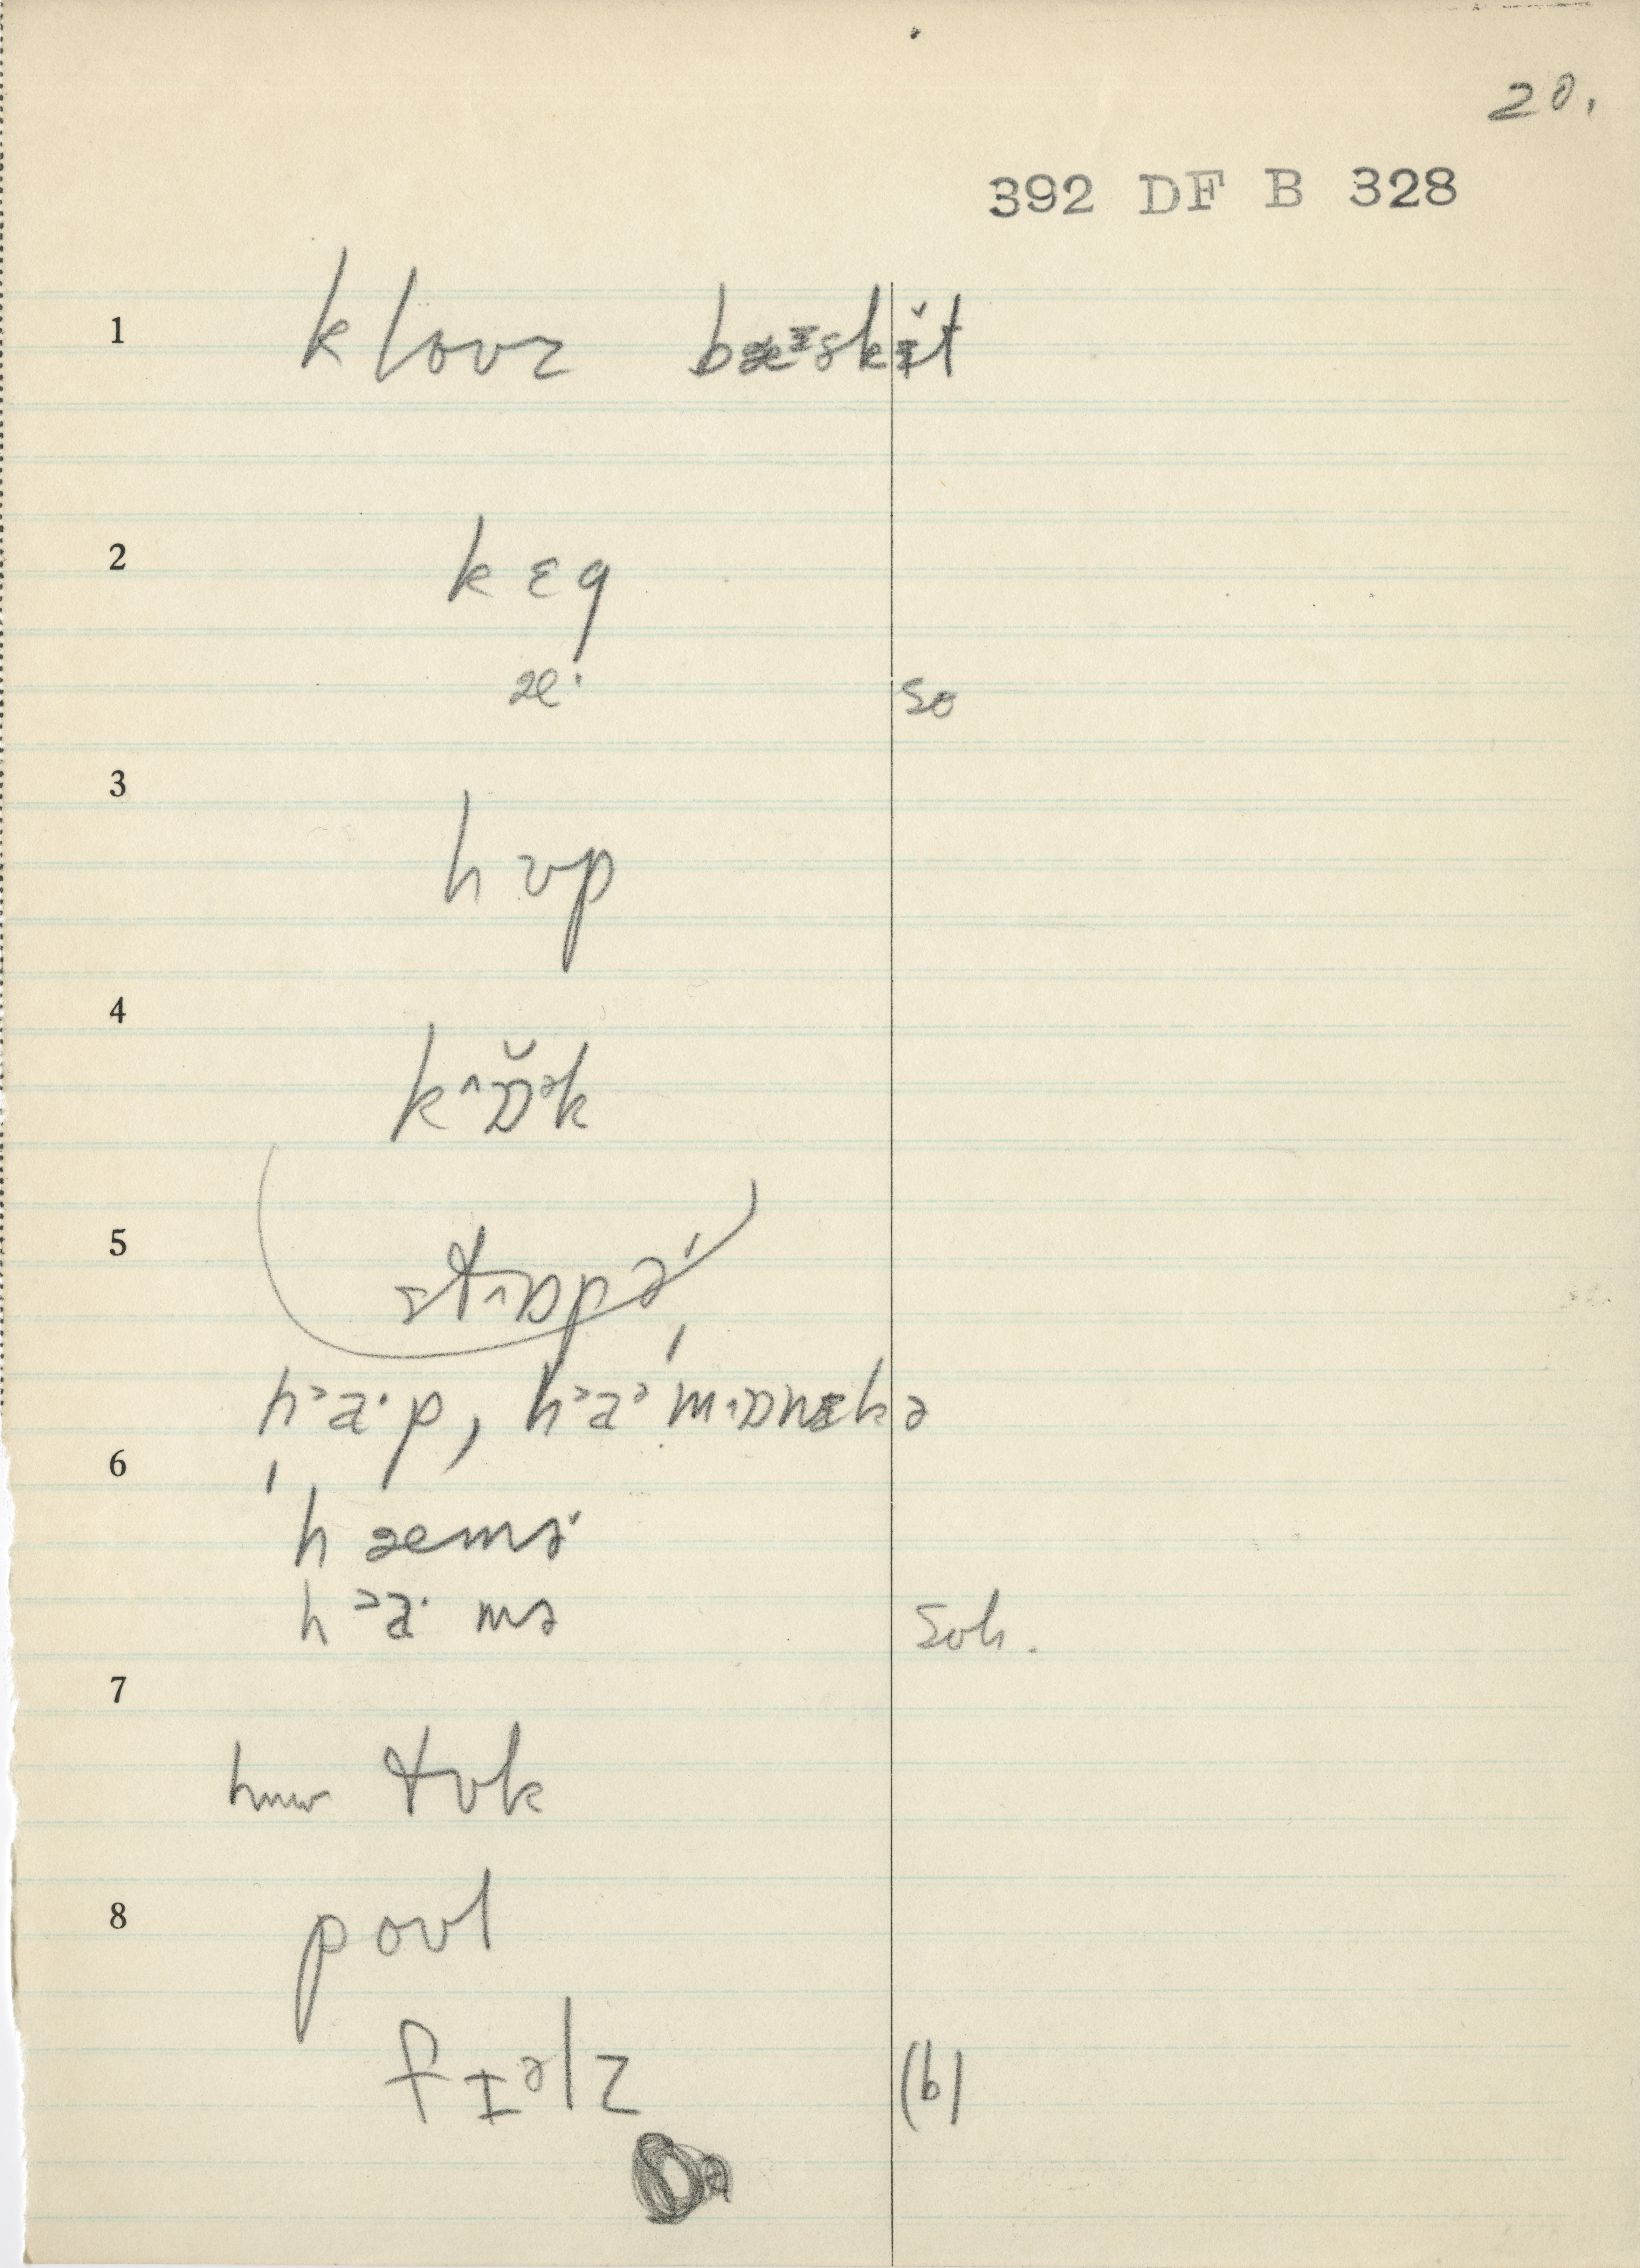 20.
392 DF B 328
1 kloʊz bæᶻskɪ̆t
2 kɛg
æ· sə
3 hʊp
4 k^ɒ̆ᵊk
5 st^ɒpə'
hᵊa·p, hᵊaᵊm^ɒnɪkə
6 'hæmə˞
hᵊa· mə soh.
7 hmw tʊk
8 poʊl
fɪᵊlz (b)